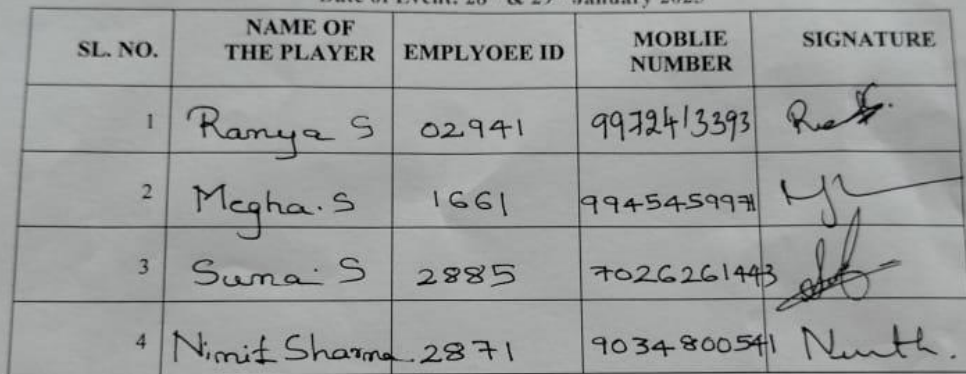 Date of Event: 28 & 29 January 2023
SL. NO. NAME OF THE PLAYER EMPLYOEE ID MOBLIE NUMBER SIGNATURE
1 Ranya S 02941 9972413393
2 Megha. S 1661 9945459971
3 Suma S 2885 7026261443
4 Nimit Sharma 2871 9034800541